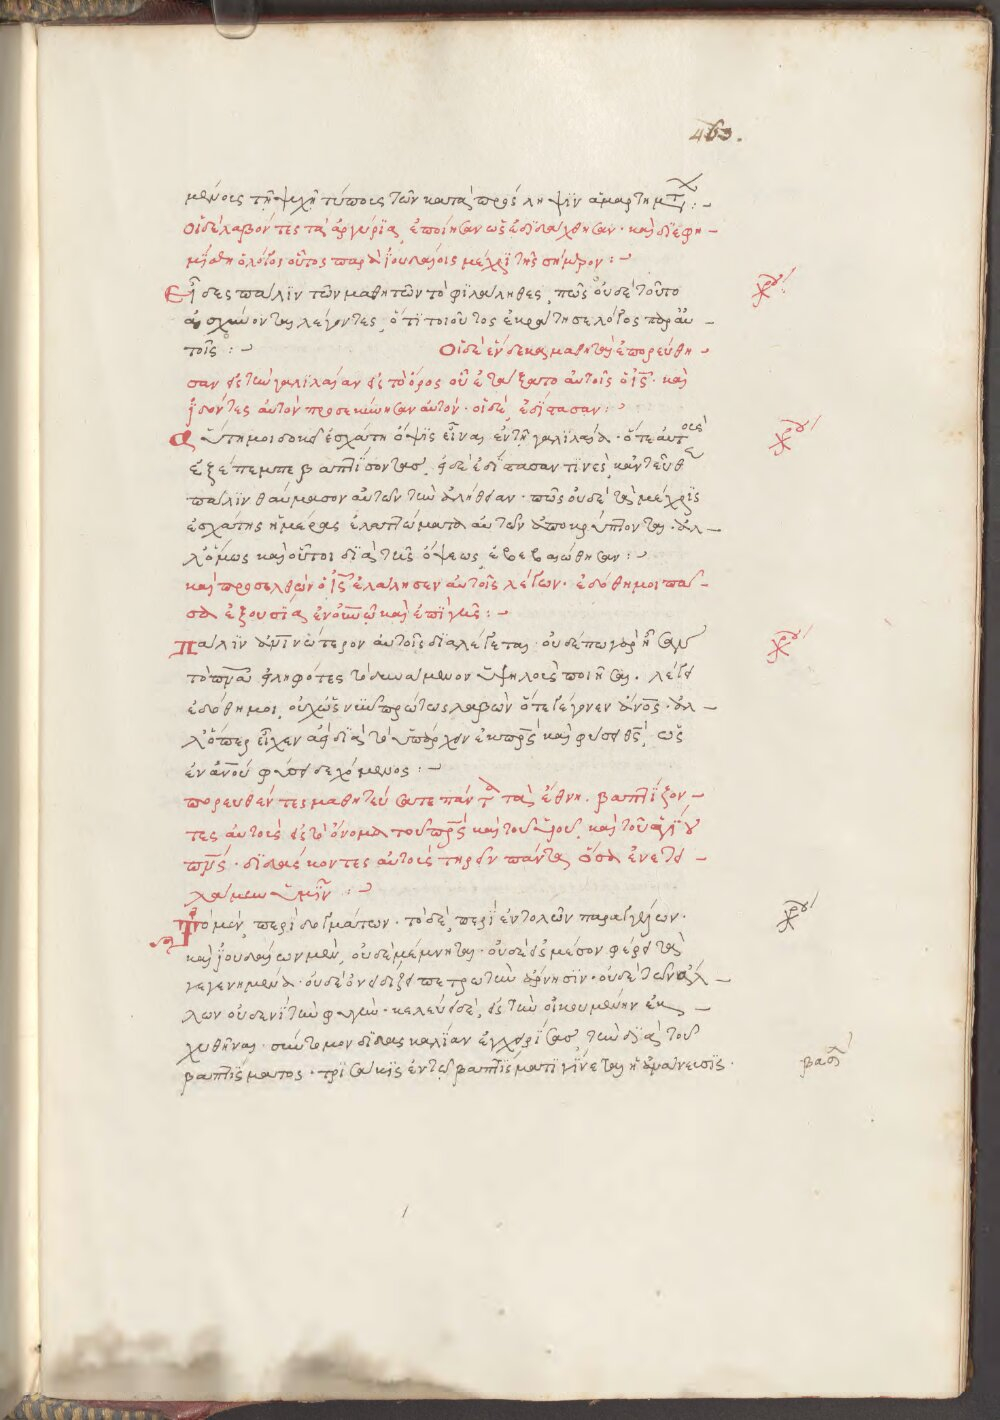 463.
μένοις τῆ ψυχῆ τύποις τῶν κατα πρόσληψϊν ἁμαρτημτ :-
Οἱ δὲ λαβόντες τὰ ἀργύρϊα, ἐποίησαν ὡς ἐδϊδάχθησαν· καὶ διεφη-
μίσθη ὁ λόγος οὗτος παρὰ ἰουδαίοις μέχρϊ τῆς σήμερον :-
Εἶδες πάλϊν τῶν μαθητῶν τὸ φϊλάληθες, πῶς οὐδὲ τοῦτο
αἰσχύνονται λέγοντες, ὅτϊ τοιοῦτος ἐκράτησε λόγος παρ αὐ-
τοῖς :- Οἱ δὲ ἕνδεκα μαθηταὶ ἐπορεύθη-
σαν εἰς τὴν γαλϊλαίαν εἰς τὸ ὄρος οὗ ἐτάξατο αὐτοῖς ὁ ις· καὶ
ἰδόντες αὐτὸν προσεκύνησαν αὐτόν· οἱ δὲ, ἐδίστασαν :-
Αὕτη μοι δοκεῖ ἐσχάτη ὄψϊς εἶναι ἐν τῆ γαλϊλαία· ὅτε αὐτοὺς
ἐξέπεμπε βαπτϊσοντας, εἰ δὲ ἐδίστασαν τϊνὲς, κἀντεῦθ
πάλϊν θαύμασον αὐτῶν τὴν ἀλήθειαν· πῶς οὐδὲ τὰ μέχρϊς
ἐσχάτης ἡμέρας ἐλαττώματα αὐτῶν ἀποκρύπτονται· ἀλ-
λ' ὅμως καὶ οὗτοι διὰ τῆς ὄψεως ἐβεβαιώθησαν :-
καὶ προσελθὼν ὁ ις ἐλάλησεν αὐτοῖς λέγων· ἐδόθη μοι πᾶ-
σα ἐξουσϊα ἐν οὐνῶ καὶ ἐπὶ γῆς :-
Πάλϊν ανϊνώτερον αὐτοῖς διαλέγεται· οὐδέπω γὰρ ἦσαν
τὸ πνα εἰληφότες τὸ δυνάμενον ὑψηλοὺς ποιῆσαι. λέγει
ἐδόθη μοι, οὐχ ὡς νῦν πρώτως λαβὼν ὅτε γέγονεν ἀνος· ἀλ-
λ' ὅπερ εἶχεν ἀεὶ διὰ τὸ ὑπάρχειν ἐκ πρς καὶ φύσει θς, ὡς
ἐν ἀνου φύσει δεχόμενος :-
πορευθέντες μαθητεύσατε πάντα τὰ ἔθνη. βαπτϊζον-
τες αὐτοὺς εἰς τὸ ὄνομα τοῦ πρς καὶ τοῦ υἱοῦ, καὶ τοῦ ἁγϊου
πνς· διδάσκοντες αὐτοὺς τηρεῖν πάντα ὅσα ἐνετει-
λάμην ὑμϊν :-
Τὸ μὲν, περὶ δογμάτων· τὸ δὲ, περὶ ἐντολῶν παραγγέλων·
καὶ ἰουδαίων μὲν, οὐδὲ μέμνηται· οὐδὲ εἰς μέσον φέρει τὰ
γεγενημένα· οὐδὲ ὀνειδίζει πέτρω τὴν ἄρνησϊν· οὐδὲ τῶν ἀλ-
λων οὐδενϊ τὴν φυγὴν· κελεύει δὲ, εἰς τὴν οἰκουμένην ἐκ-
χυθῆναι· σύντομον διδασκαλϊαν ἐγχειρίσας, τὴν δϊὰ τοῦ
βαπτϊσματος· τρὶς ἐν τῶ βαπτϊσματϊ γϊνεται ἡ